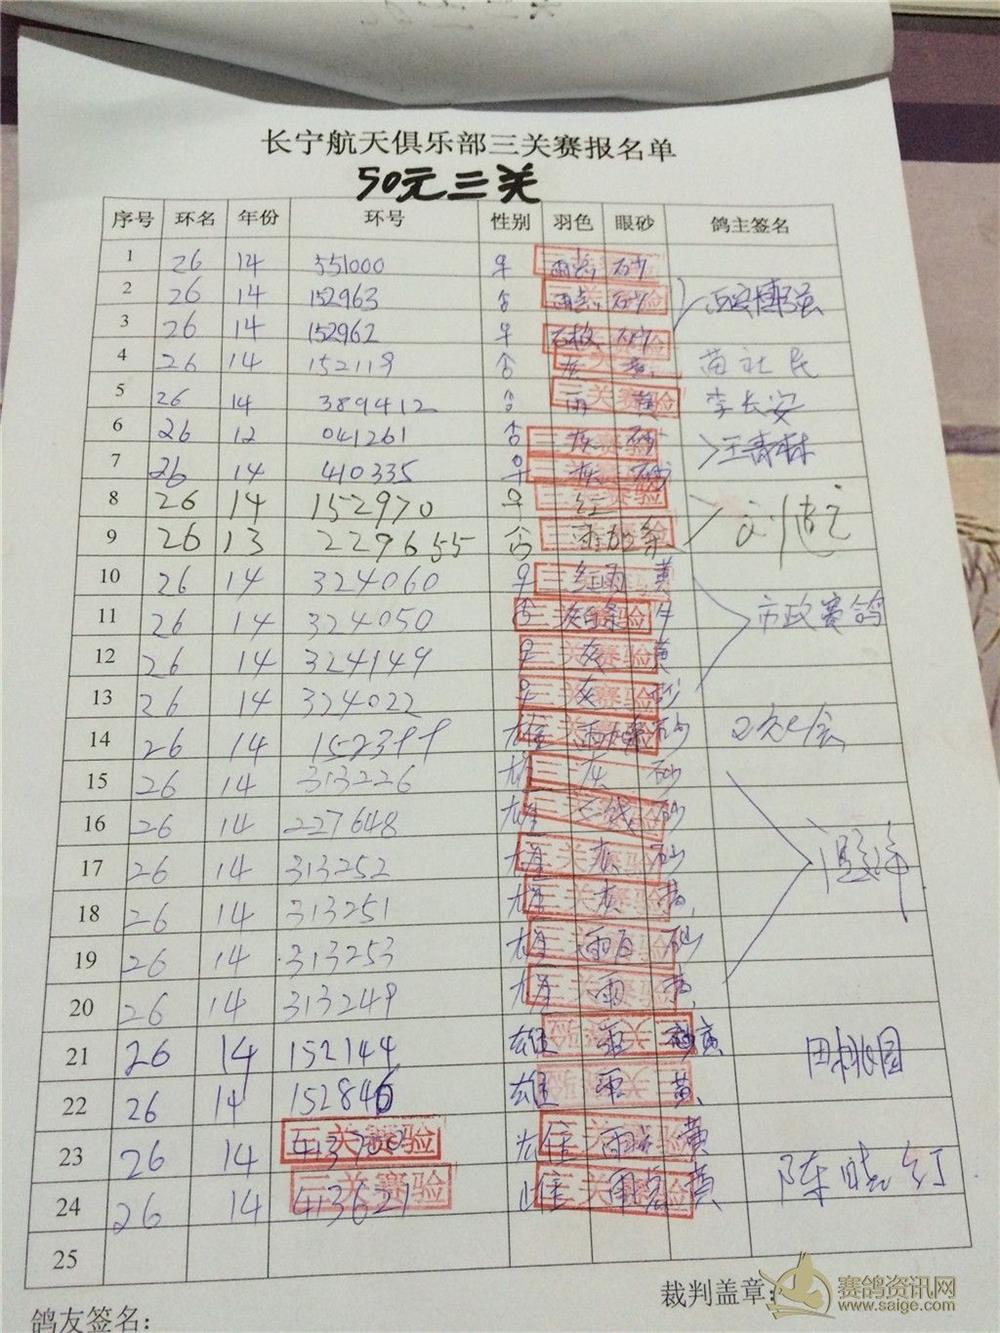 长宁航天俱乐部三关赛报名单
50元三关
序号 环名 年份 环号 性别 羽色 眼砂 鸽主签名
1 26 14 551000 早 雨点 砂
2 26 14 152963 否 雨点 砂 西安博强
3 26 14 152962 早 石板 砂
4 26 14 152119 否 灰 黄 苗社民
5 26 14 389412 否 雨 黄 李长安
6 26 12 041261 否 灰 砂 王青林
7 26 14 410335 早 灰 砂
8 26 14 152970 早 红
9 26 13 229655 否 雨白条
10 26 14 324060 早 红雨 黄
11 26 14 324050 否 灰白条 牛 市政赛鸽
12 26 14 324149 早 灰 黄
13 26 14 324022 早 灰 砂
14 26 14 152399 雄 雨白条 砂
15 26 14 313226 雄 灰 砂
16 26 14 227648 雄 砂
17 26 14 313252 雄 灰 砂
18 26 14 313251 雄 灰 黄
19 26 14 313253 雄 雨白 砂
20 26 14 313249 雄 雨 黄
21 26 14 152144 雄 雨 黄 田桃园
22 26 14 152846 雄 雨 黄
23 26 14 三关赛验 雄 雨点 黄
24 26 14 三关赛验 雄 雨点 黄 陈晓红
25
裁判盖章：
鸽友签名：
赛鸽资讯网
www.saige.com